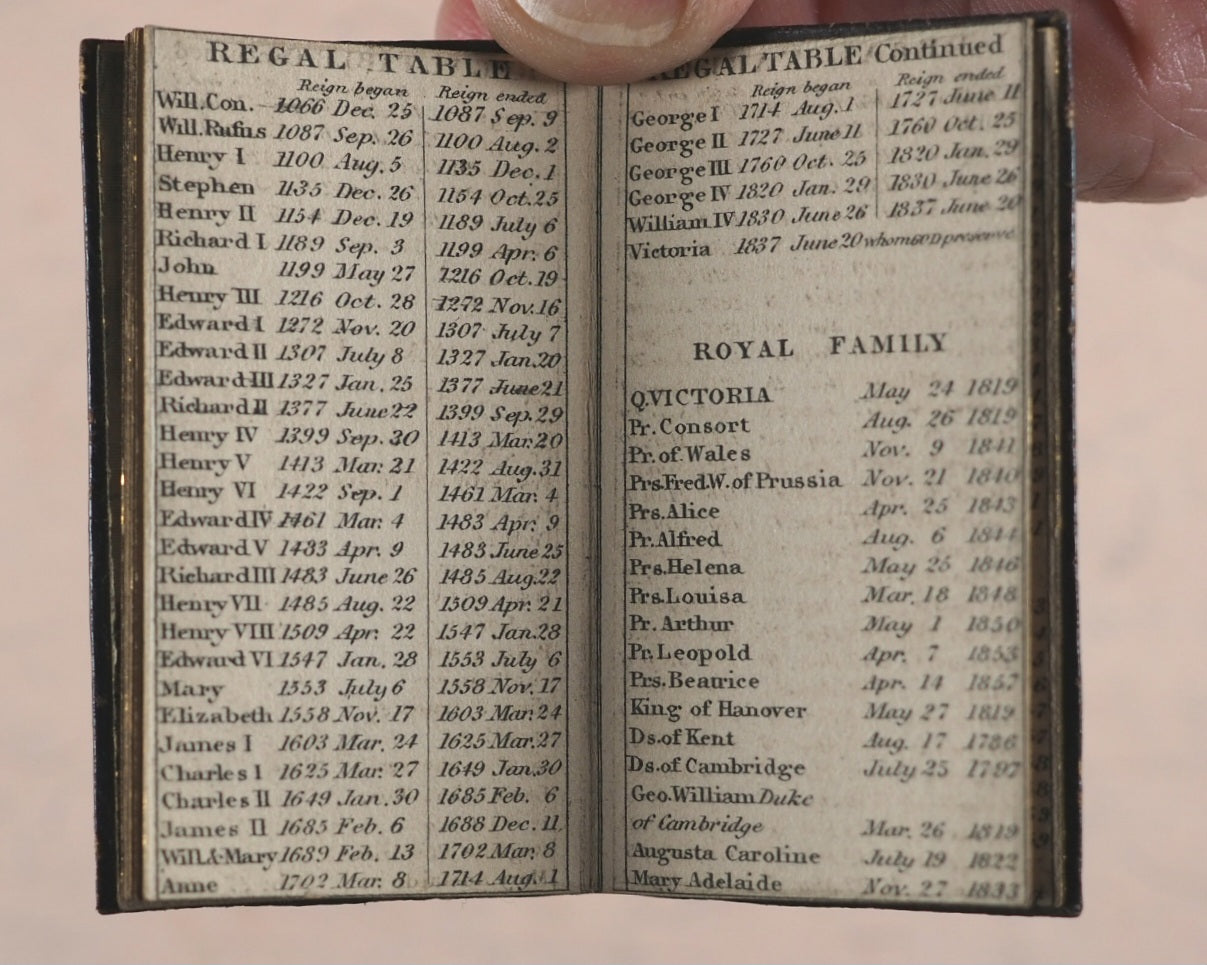 REGAL TABLE
Reign began Reign ended
Will.Con. 1066 Dec. 25 1087 Sep. 9
Will.Rufus 1087 Sep. 26 1100 Aug. 2
Henry I 1100 Aug. 5 1135 Dec. 1
Stephen 1135 Dec. 26 1154 Oct. 25
Henry II 1154 Dec. 19 1189 July 6
Richard I 1189 Sep. 3 1199 Apr. 6
John 1199 May 27 1216 Oct. 19
Henry III 1216 Oct. 28 1272 Nov. 16
Edward I 1272 Nov. 20 1307 July 7
Edward II 1307 July 8 1327 Jan. 20
Edward III 1327 Jan. 25 1377 June 21
Richard II 1377 June 22 1399 Sep. 29
Henry IV 1399 Sep. 30 1413 Mar. 20
Henry V 1413 Mar. 21 1422 Aug. 31
Henry VI 1422 Sep. 1 1461 Mar. 4
Edward IV 1461 Mar. 4 1483 Apr. 9
Edward V 1483 Apr. 9 1483 June 25
Richard III 1483 June 26 1485 Aug. 22
Henry VII 1485 Aug. 22 1509 Apr. 21
Henry VIII 1509 Apr. 22 1547 Jan. 28
Edward VI 1547 Jan. 28 1553 July 6
Mary 1553 July 6 1558 Nov. 17
Elizabeth 1558 Nov. 17 1603 Mar. 24
James I 1603 Mar. 24 1625 Mar. 27
Charles I 1625 Mar. 27 1649 Jan. 30
Charles II 1649 Jan. 30 1685 Feb. 6
James II 1685 Feb. 6 1688 Dec. 11
Will.& Mary 1689 Feb. 13 1702 Mar. 8
Anne 1702 Mar. 8 1714 Aug. 1
REGAL TABLE Continued
Reign began Reign ended
George I 1714 Aug. 1 1727 June 11
George II 1727 June 11 1760 Oct. 25
George III 1760 Oct. 25 1820 Jan. 29
George IV 1820 Jan. 29 1830 June 26
William IV 1830 June 26 1837 June 20
Victoria 1837 June 20 whom GOD preserve
ROYAL FAMILY
Q.VICTORIA May 24 1819
Pr. Consort Aug. 26 1819
Pr. of Wales Nov. 9 1841
Prs.Fred.W. of Prussia Nov. 21 1840
Prs. Alice Apr. 25 1843
Pr. Alfred Aug. 6 1844
Prs. Helena May 25 1846
Prs. Louisa Mar. 18 1848
Pr. Arthur May 1 1850
Pr. Leopold Apr. 7 1853
Prs. Beatrice Apr. 14 1857
King of Hanover May 27 1819
Ds. of Kent Aug. 17 1786
Ds. of Cambridge July 25 1797
Geo. William Duke
of Cambridge Mar. 26 1819
Augusta Caroline July 19 1822
Mary Adelaide Nov. 27 1833